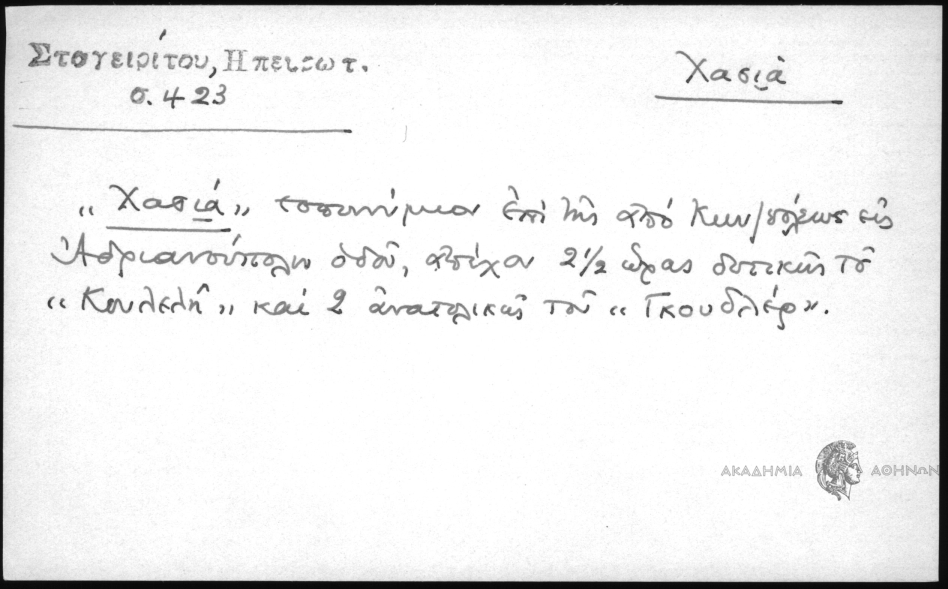 Σταγειρίτου, Ηπειρωτ.
σ. 423
Χασιὰ
„Χασιά„ τοπωνύμιον ἐπὶ τῆς ἀπό Κων/πόλεως εἰς
Ἀδριανούπολιν ὁδοῦ, ἀπέχον 2 1/2 ὥρας δυτικῶς τοῦ
„Κουλελῆ„ καί 2 ἀνατολικῶς τοῦ „Γκουδλέρ„.
ΑΚΑΔΗΜΙΑ ΑΘΗΝΩΝ